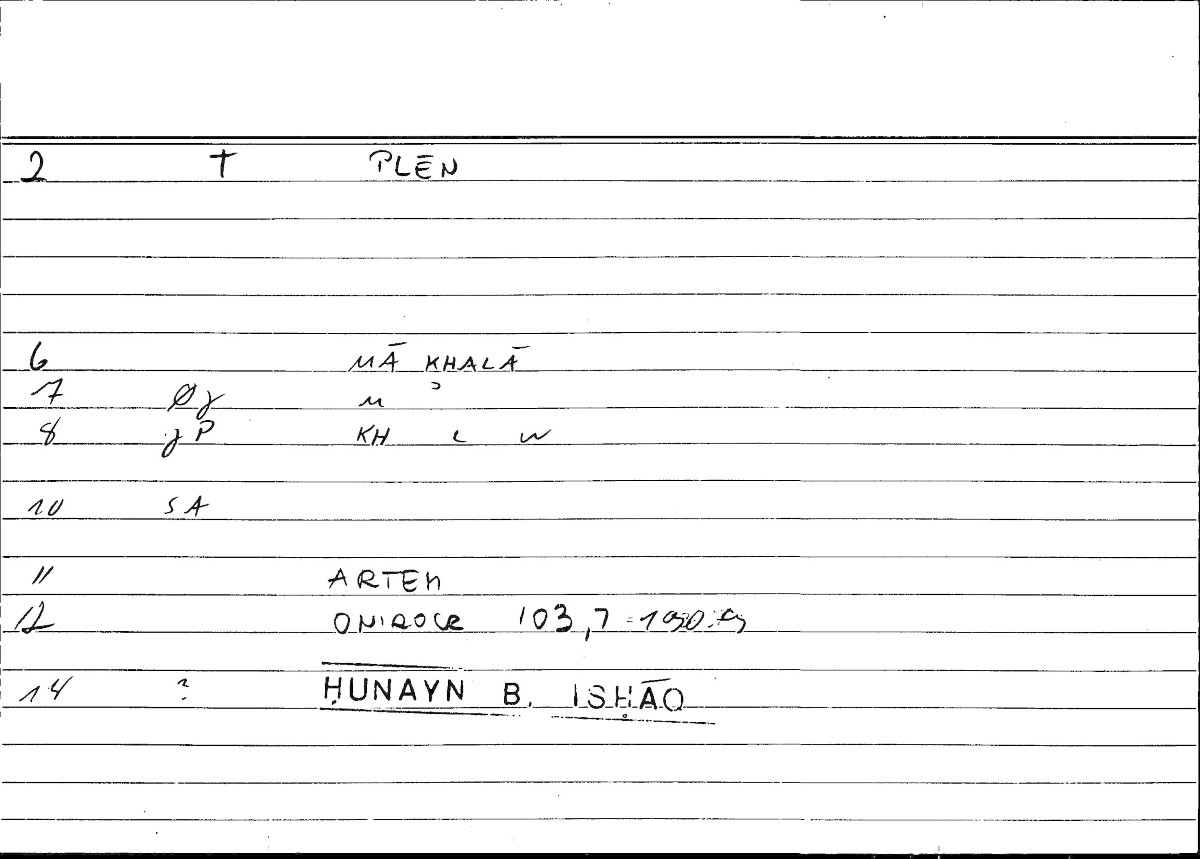 2 † PLĒN
6 MĀ KHALĀ
7 Øγ M ʾ
8 γP KH L W
10 SA
11 ARTEM
12 ONIROCR 103,7
14 ? ḤUNAYN B. ISḤĀQ